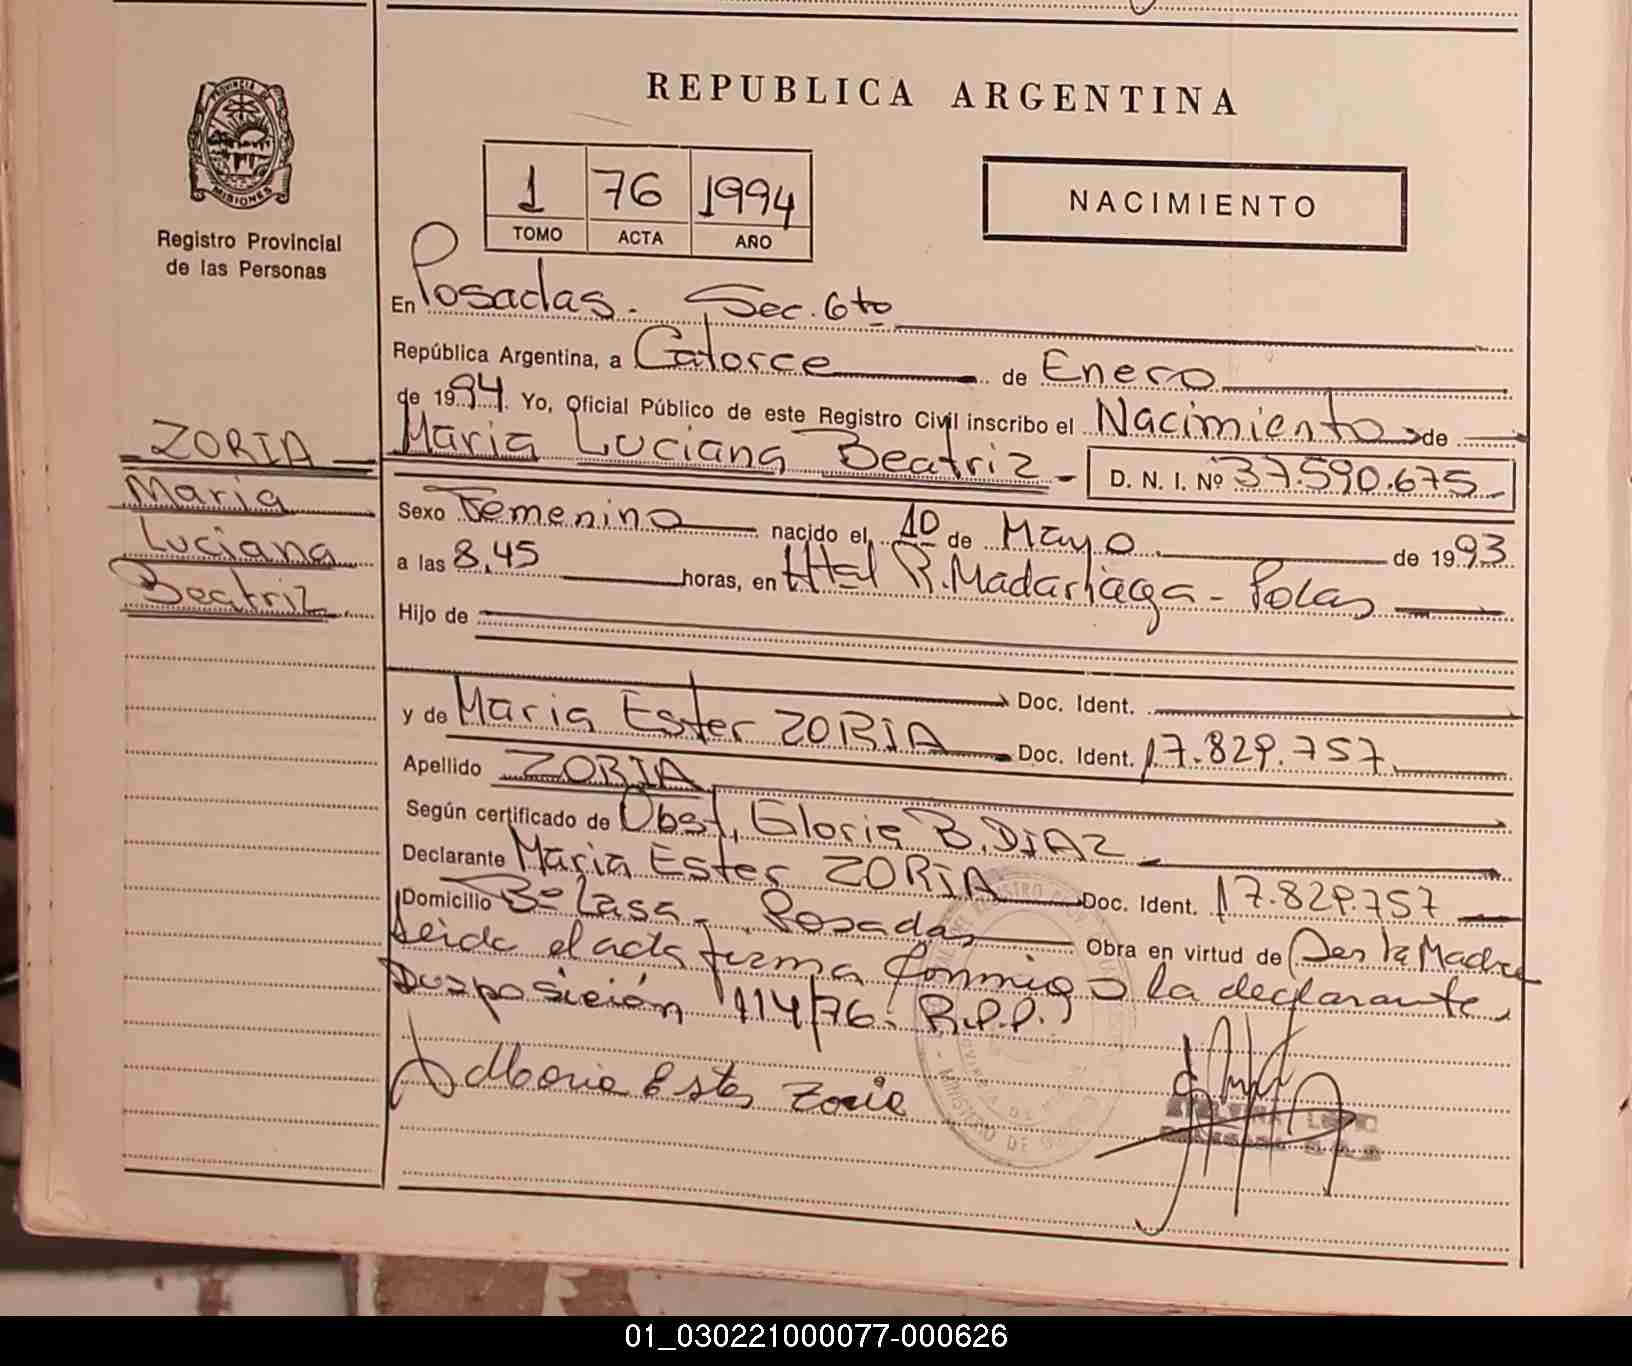 REPUBLICA ARGENTINA
PROVINCIA DE
MISIONES
Registro Provincial
de las Personas
1 76 1994
TOMO ACTA AÑO
NACIMIENTO
En Posadas. Sec. 6to
República Argentina, a Catorce de Enero
de 1994. Yo, Oficial Público de este Registro Civil inscribo el Nacimiento de
Maria Luciana Beatriz - D. N. I. Nº 37.590.675
ZORIA
Maria
Luciana
Beatriz
Sexo Femenino nacido el 10 de Mayo de 1993
a las 8,45 horas, en Htal R. Madariaga - Pdas
Hijo de
Doc. Ident.
y de Maria Ester ZORIA Doc. Ident. 17.829.757
Apellido ZORIA
Según certificado de Obst. Gloria B. DIAZ
Declarante Maria Ester ZORIA Doc. Ident. 17.829.757
Domicilio Posadas Obra en virtud de Ser la Madre
Leida el acta firma conmigo la declarante,
Disposición 114/76. R.P.P.)
Maria Ester Zoria
MINISTRO DE
01_030221000077-000626